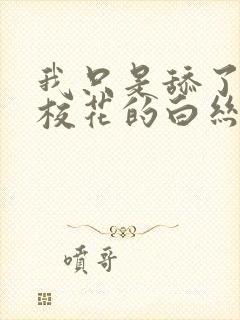 我只是舔了
校花的白絲
噴哥